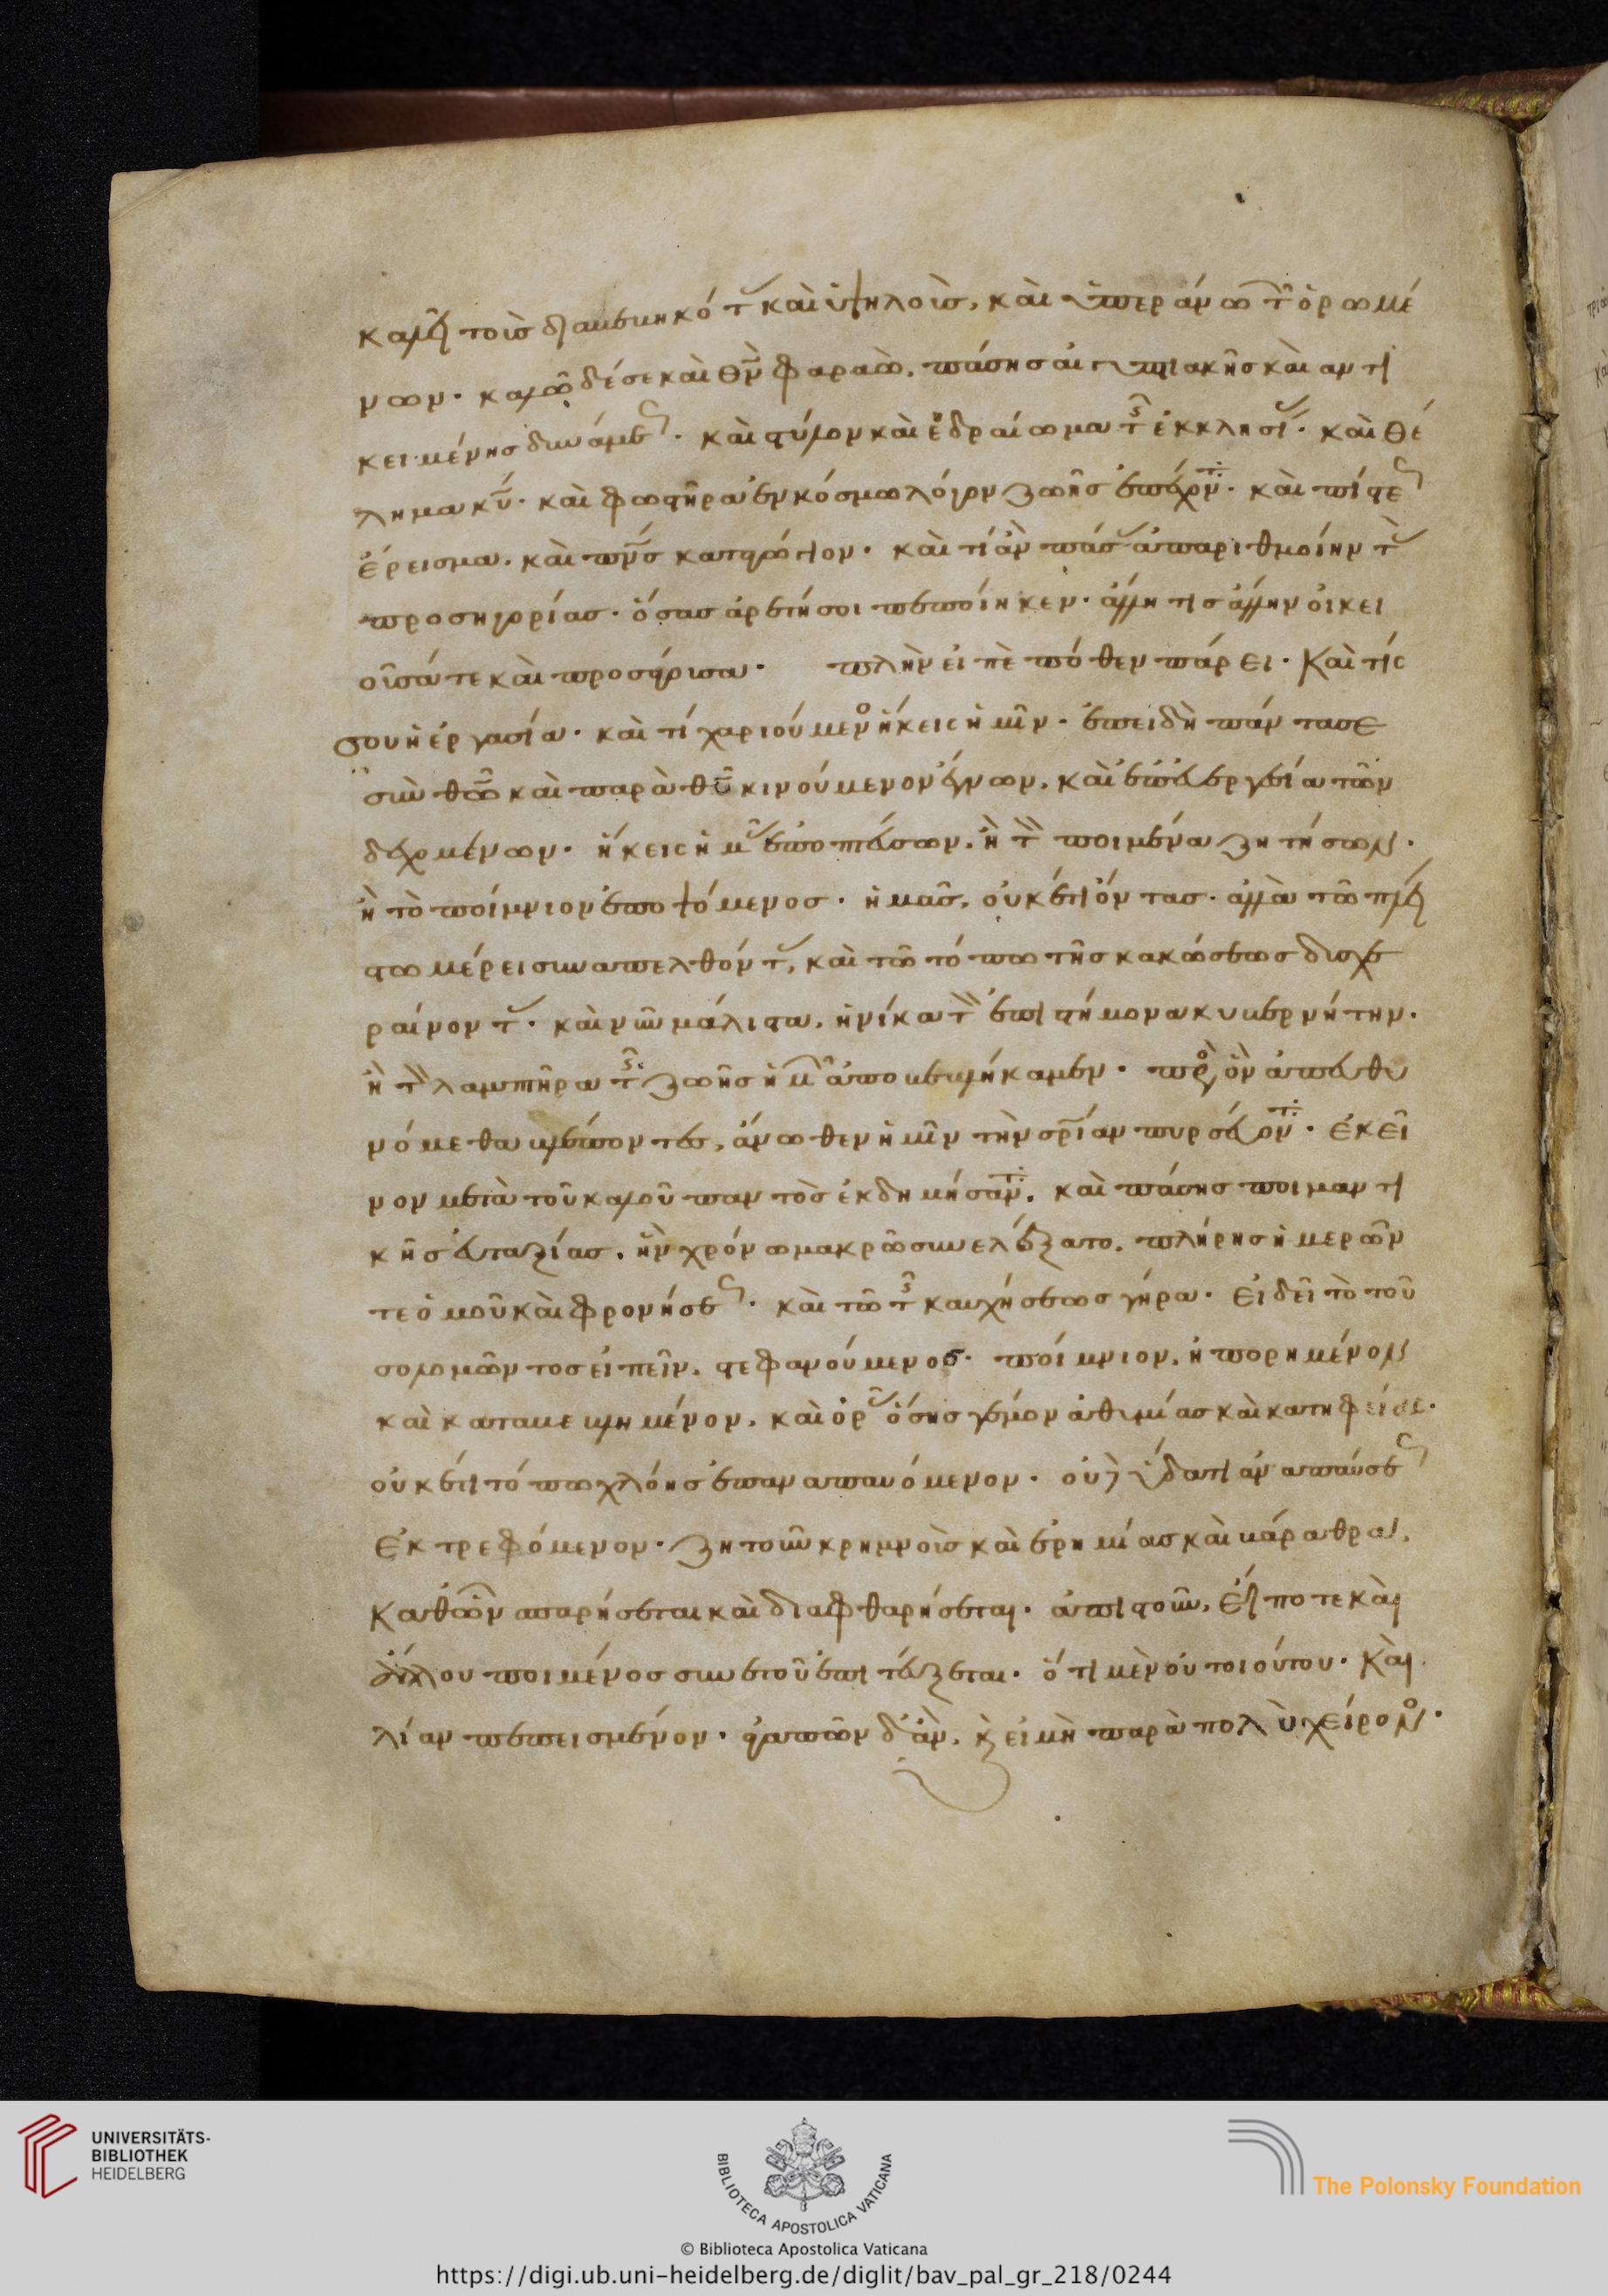 καλεῖ τοὺς διαβεβηκότας καὶ ὑψηλοὺς, καὶ ὑπεράνω τῶν ὁρωμέ
νων· καλῶ δέ σε καὶ θν φαραὼ, πάσης αἰγυπτιακῆς καὶ αντι
κειμένης δυνάμεως· καὶ στύλον καὶ ἑδραίωμα τῆς ἐκκλησίας· καὶ θέ
λημα κυ· καὶ φωστῆρα ἐν κόσμω λόγον ζωῆς ἐπέχοντα· καὶ πίστεως
ἔρεισμα, καὶ πνς καταγώγιον· καὶ τί ἂν πάσας ἀπαριθμοίην τὰς
προσηγορίας· ὅσας ἀρετή σοι πεποίηκεν· ἄλλη τις ἄλλην οἰκει
οῦσά τε καὶ προσάγουσα· πλὴν εἰπὲ πόθεν πάρει· Καὶ τίς
σου ἡ ἐργασία· καὶ τί χαριούμενος ἥκεις ἡμῖν· ἐπειδὴ πάντα σε
σὺν θω καὶ παρὰ θυ κινούμενον ἔγνων, καὶ ἐπ' εὐεργεσία τῶν
δεχομένων· ἥκεις ἡμᾶς ἐποπτεύσων, ἢ τὸν ποιμένα ζητήσων·
ἢ τὸ ποίμνιον ἐποψόμενος· ἡμᾶς, οὐκ ἔτι ὄντας· ἀλλὰ τῶ πλεί
στω μέρει συναπελθόντας, καὶ τῶ τόπω τῆς κακώσεως δυσχε
ραίνοντας· καὶ νῦν μάλιστα, ἡνίκα τὸν ἐπιστήμονα κυβερνήτην·
ἢ τὸν λαμπτῆρα τῆς ζωῆς ἡμῶν ἀποβεβλήκαμεν· πρὸς ὃν ἀπευθυ
νόμεθα βλέποντες, ἄνωθεν ἡμῖν τὴν σρίαν πυρσεύοντα· ἐκεῖ
νον μετὰ τοῦ καλοῦ παντὸς ἐκδημήσαντα, καὶ πάσης ποιμαντι
κῆς εὐταξίας, ἣν χρόνω μακρῶ συνελέξατο, πλήρης ἡμερῶν
τε ὁμοῦ καὶ φρονήσεως· καὶ τῶ τῆς καυχήσεως γήρα· εἰ δεῖ τὸ τοῦ
σολομῶντος εἰπεῖν, στεφανούμενος· ποίμνιον, ἠπορημένον
καὶ καταβεβλημένον, καὶ ὁρᾶς ὅσης γέμον ἀθυμίας καὶ κατηφείας·
οὐκ ἔτι τόπω χλόης ἐπαναπαυόμενον· οὐδὲ ὕδατι ἀναπαύσεως
ἐκτρεφόμενον· ζητοῦν κρημνοὺς καὶ ἐρημίας καὶ βάραθρα,
καθ' ὧν σπαρήσεται καὶ διαφθαρήσεται· ἀπιστοῦν, εἴ ποτε καὶ
ἄλλου ποιμένος συνετοῦ ἐπιτεύξεται· ὅτι μὲν οὐ τοιούτου· καὶ
λίαν πεπεισμένον· ἀγαπῶν δ' ἂν, κ εἰ μὴ παρὰ πολὺ χείρονος·
UNIVERSITÄTS-
BIBLIOTHEK
HEIDELBERG
BIBLIOTECA APOSTOLICA VATICANA
The Polonsky Foundation
© Biblioteca Apostolica Vaticana
https://digi.ub.uni-heidelberg.de/diglit/bav_pal_gr_218/0244